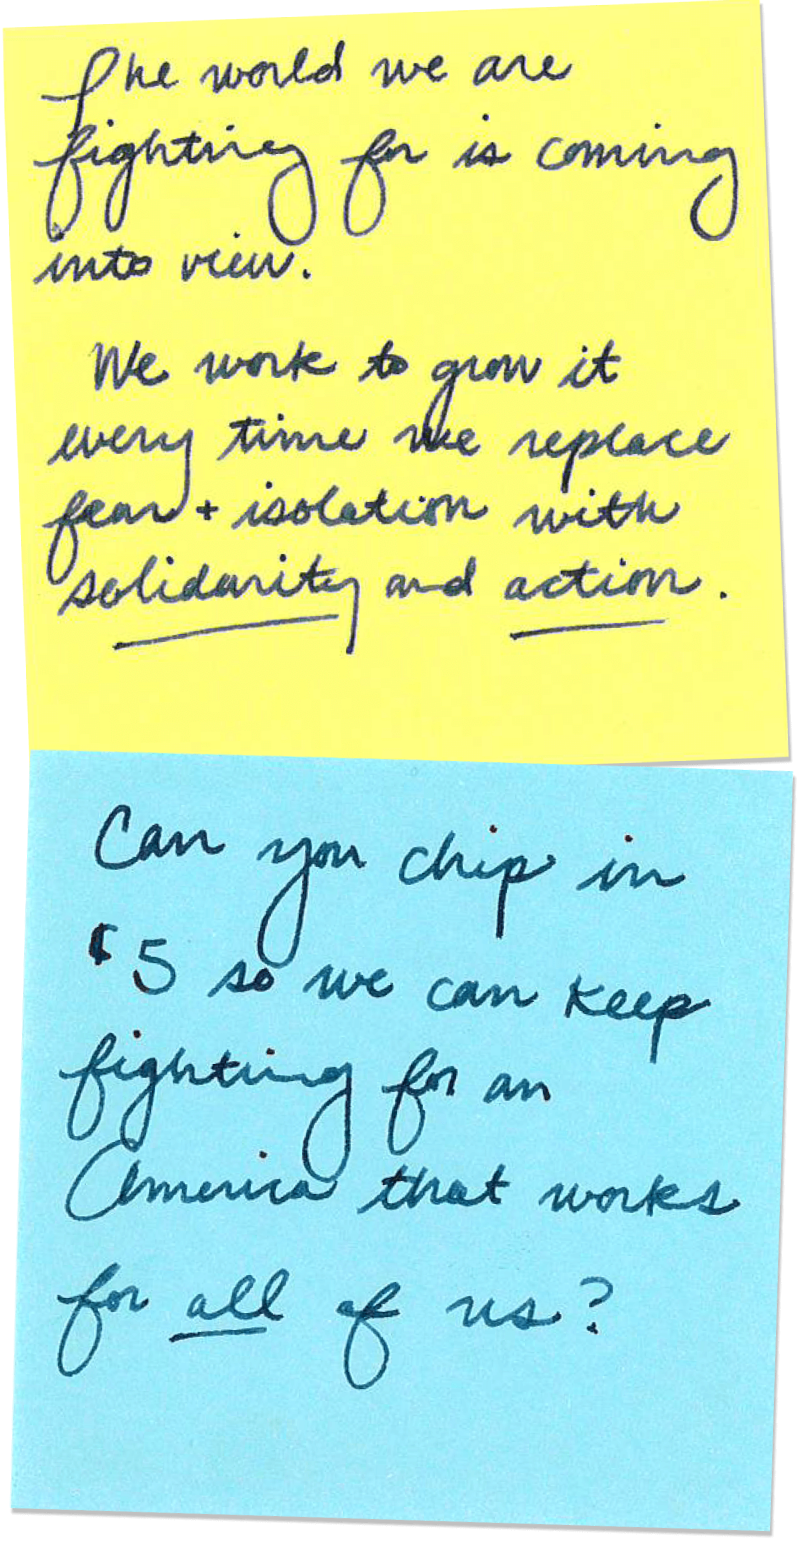 The world we are
fighting for is coming
into view.
We work to grow it
every time we replace
fear + isolation with
solidarity and action.
Can you chip in
$5 so we can keep
fighting for an
America that works
for all of us?